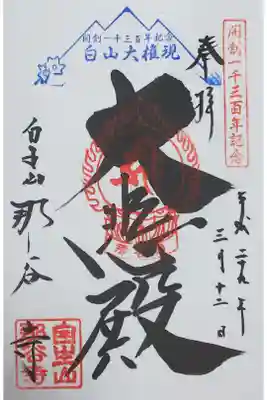 開創一千三百年記念
奉拝
平成二十九年
三月十二日
開創一千三百年記念
白山大権現
大悲殿
自生山
那谷寺
自生山
那谷寺